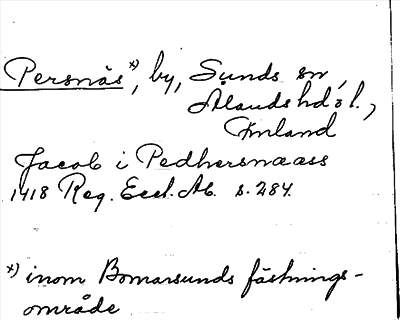 Persnäs x), by, Sunds sn,
Ålands hd o l.,
Finland
Jacob i Pedhersnæass
1418 Reg. Eccl. Ab. s. 284.
x) inom Bomarsunds fästnings-
område